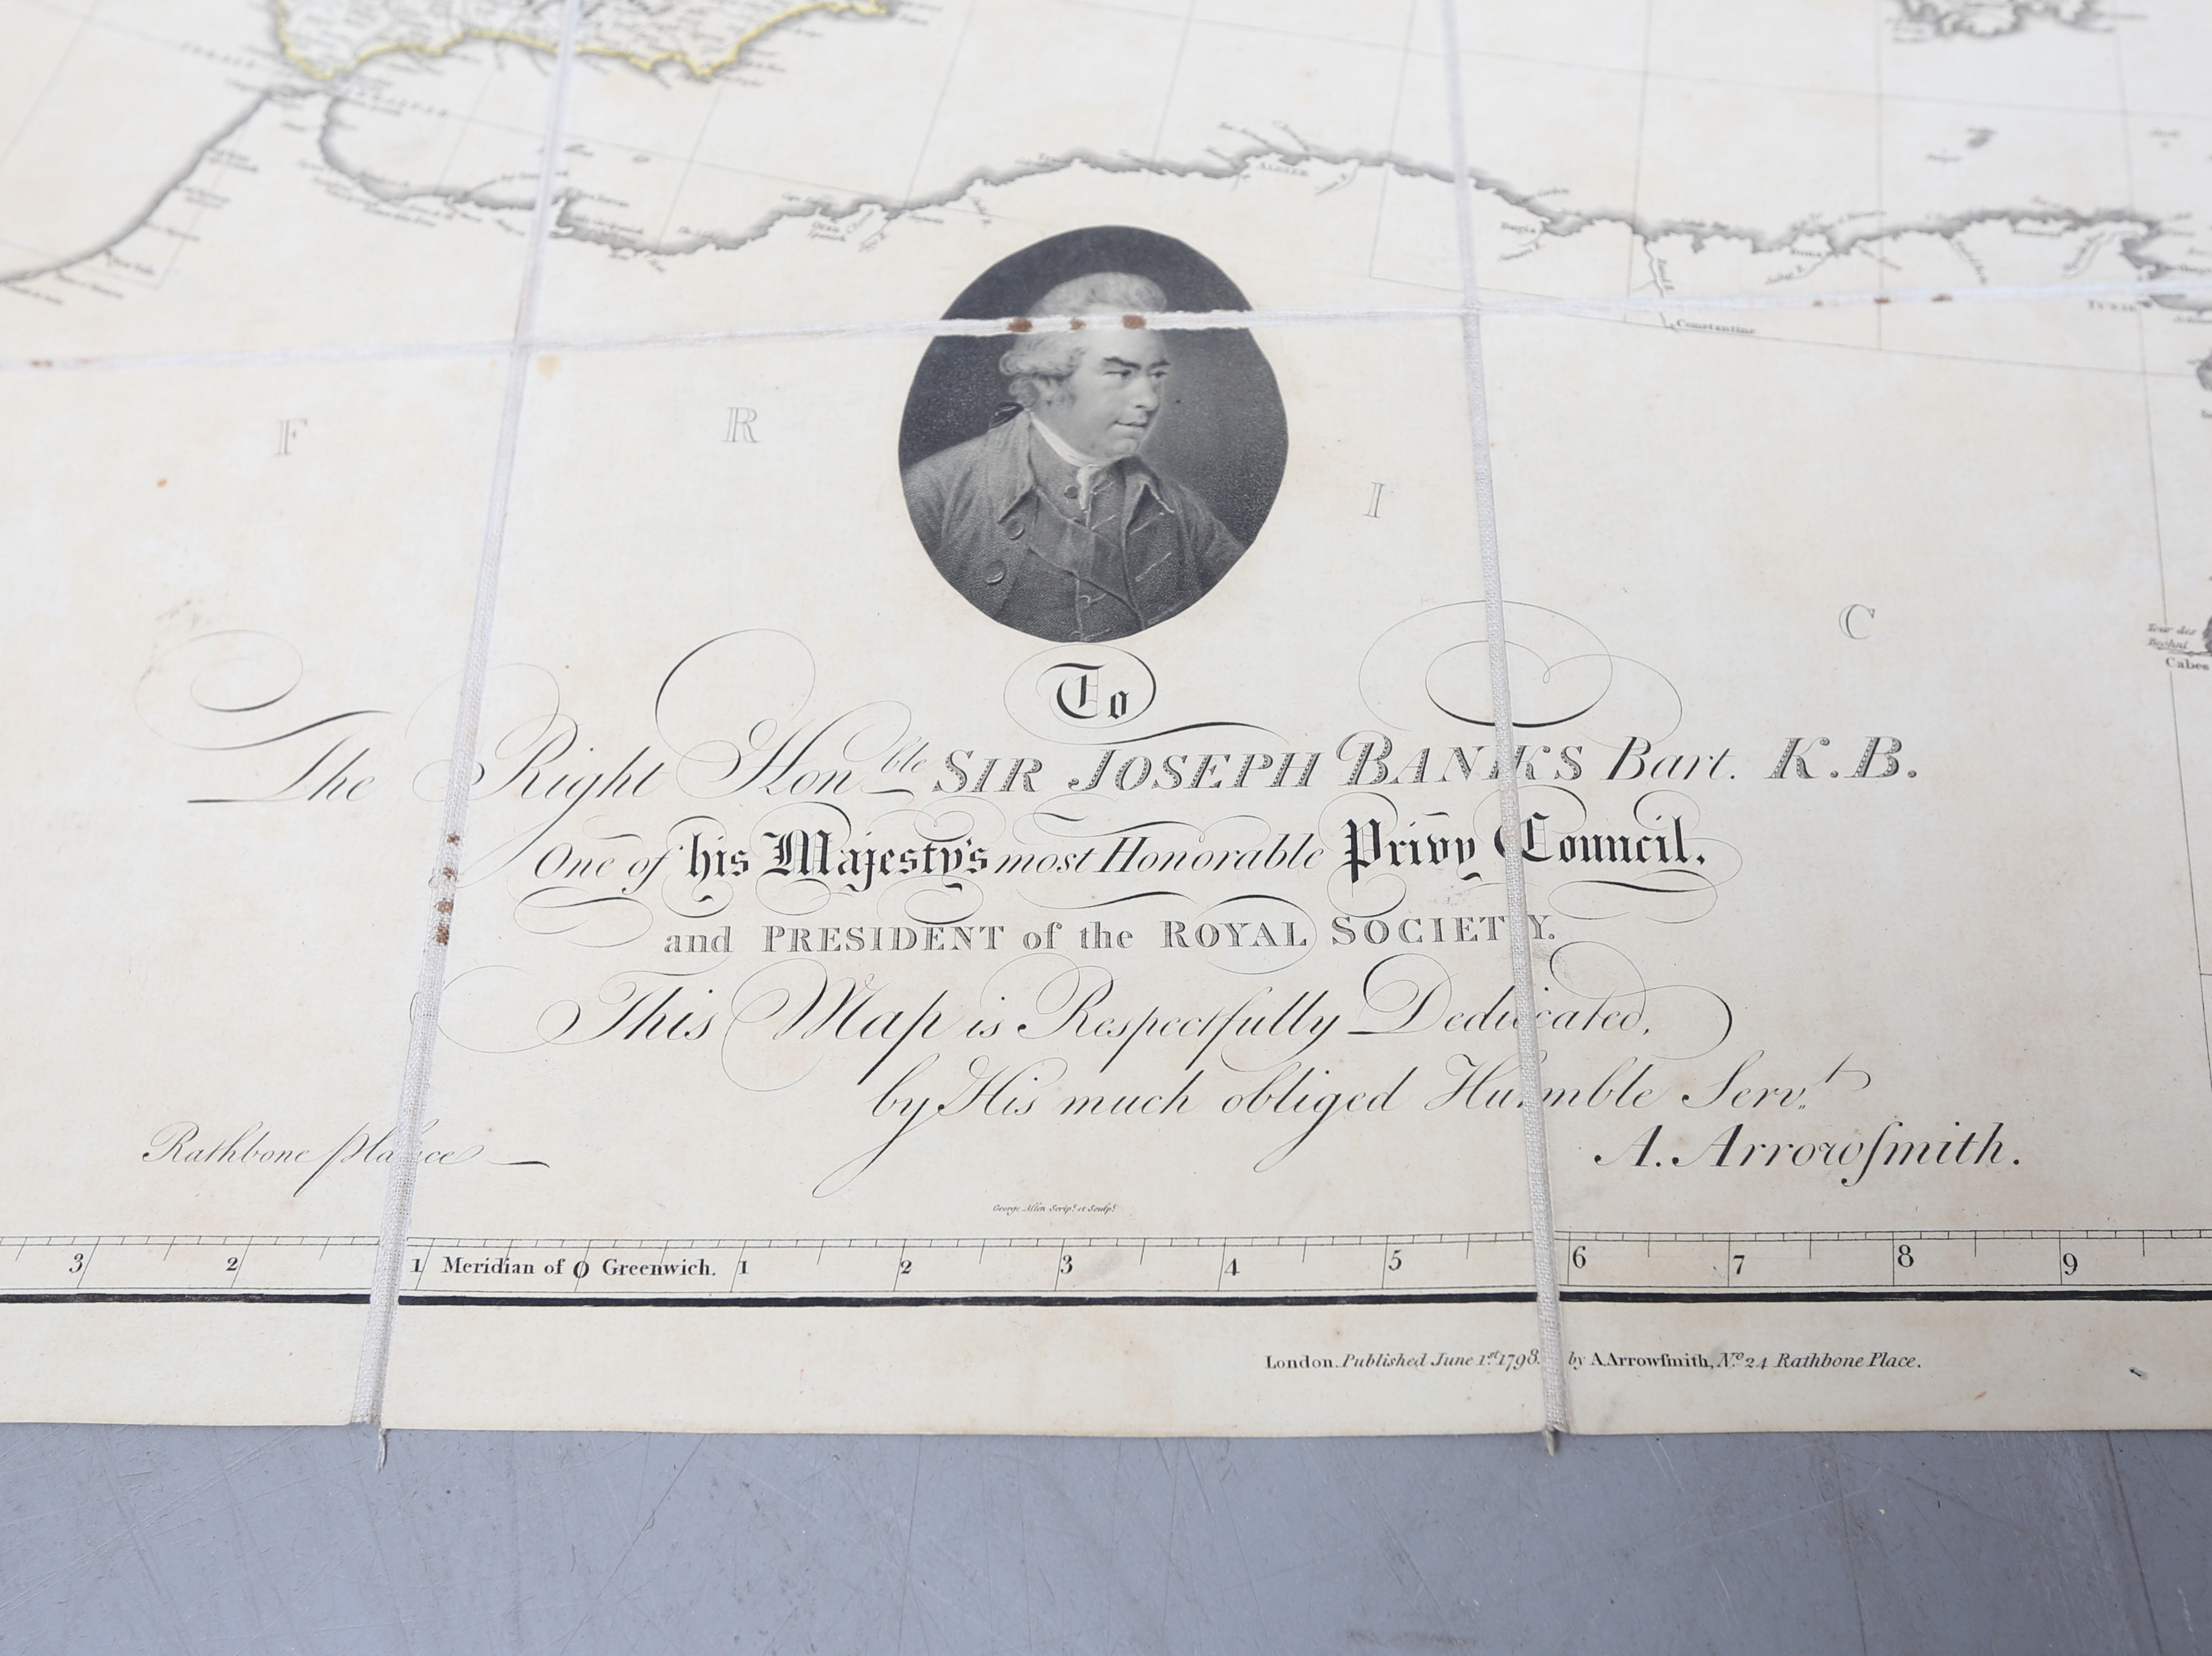 ALGIER
Constantine
TUNIS
F R I C
Tour des
Cabes
To
The Right Honble SIR JOSEPH BANKS Bart. K.B.
One of his Majesty's most Honorable Privy Council,
and PRESIDENT of the ROYAL SOCIETY.
This Map is Respectfully Dedicated,
by His much obliged Humble Servt.
Rathbone place
A. Arrowſmith.
George Allen Script. et Sculpt.
3 2 1 Meridian of 0 Greenwich. 1 2 3 4 5 6 7 8 9
London. Published June 1st. 1798. by A. Arrowſmith, No. 24 Rathbone Place.